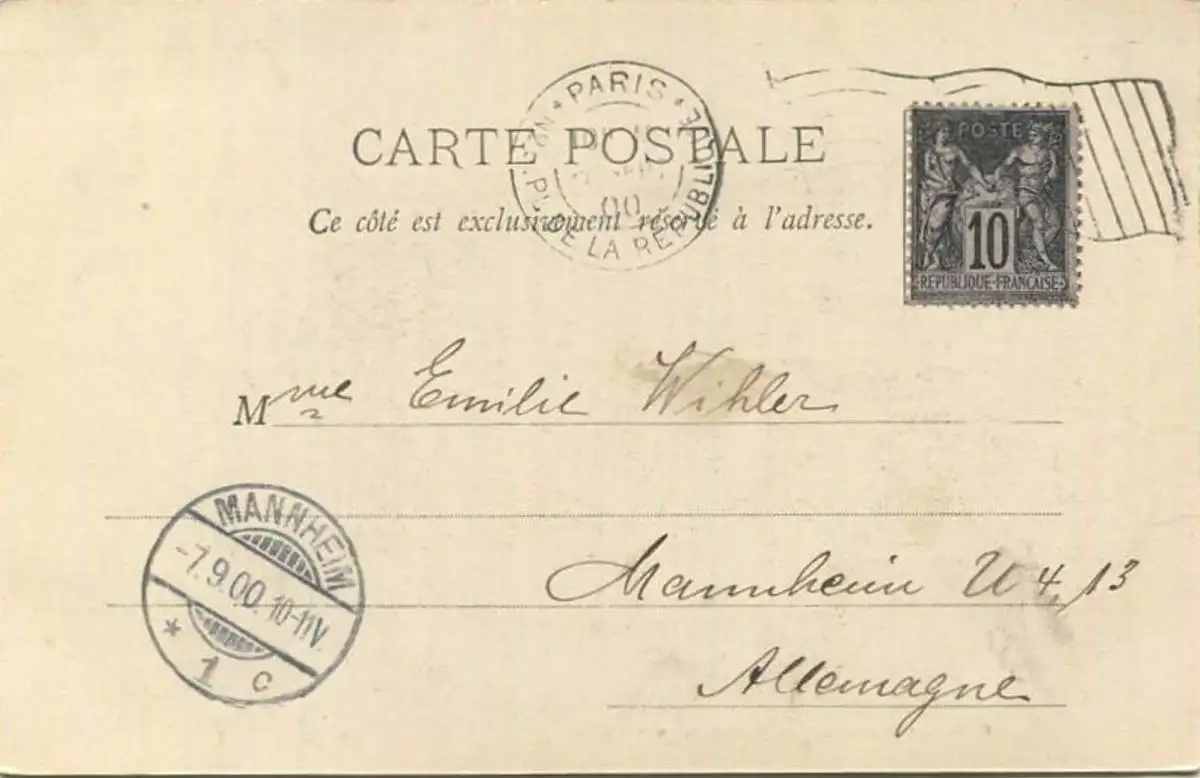 PARIS
PL. DE LA REPUBLIQUE
00
CARTE POSTALE
Ce côté est exclusivement réservé à l'adresse.
POSTE
10
REPUBLIQUE-FRANÇAISE
Mme Emilie Wihler
MANNHEIM
-7.9.00. 10-11V.
* 1 c
Mannheim U 4, 13
Allemagne